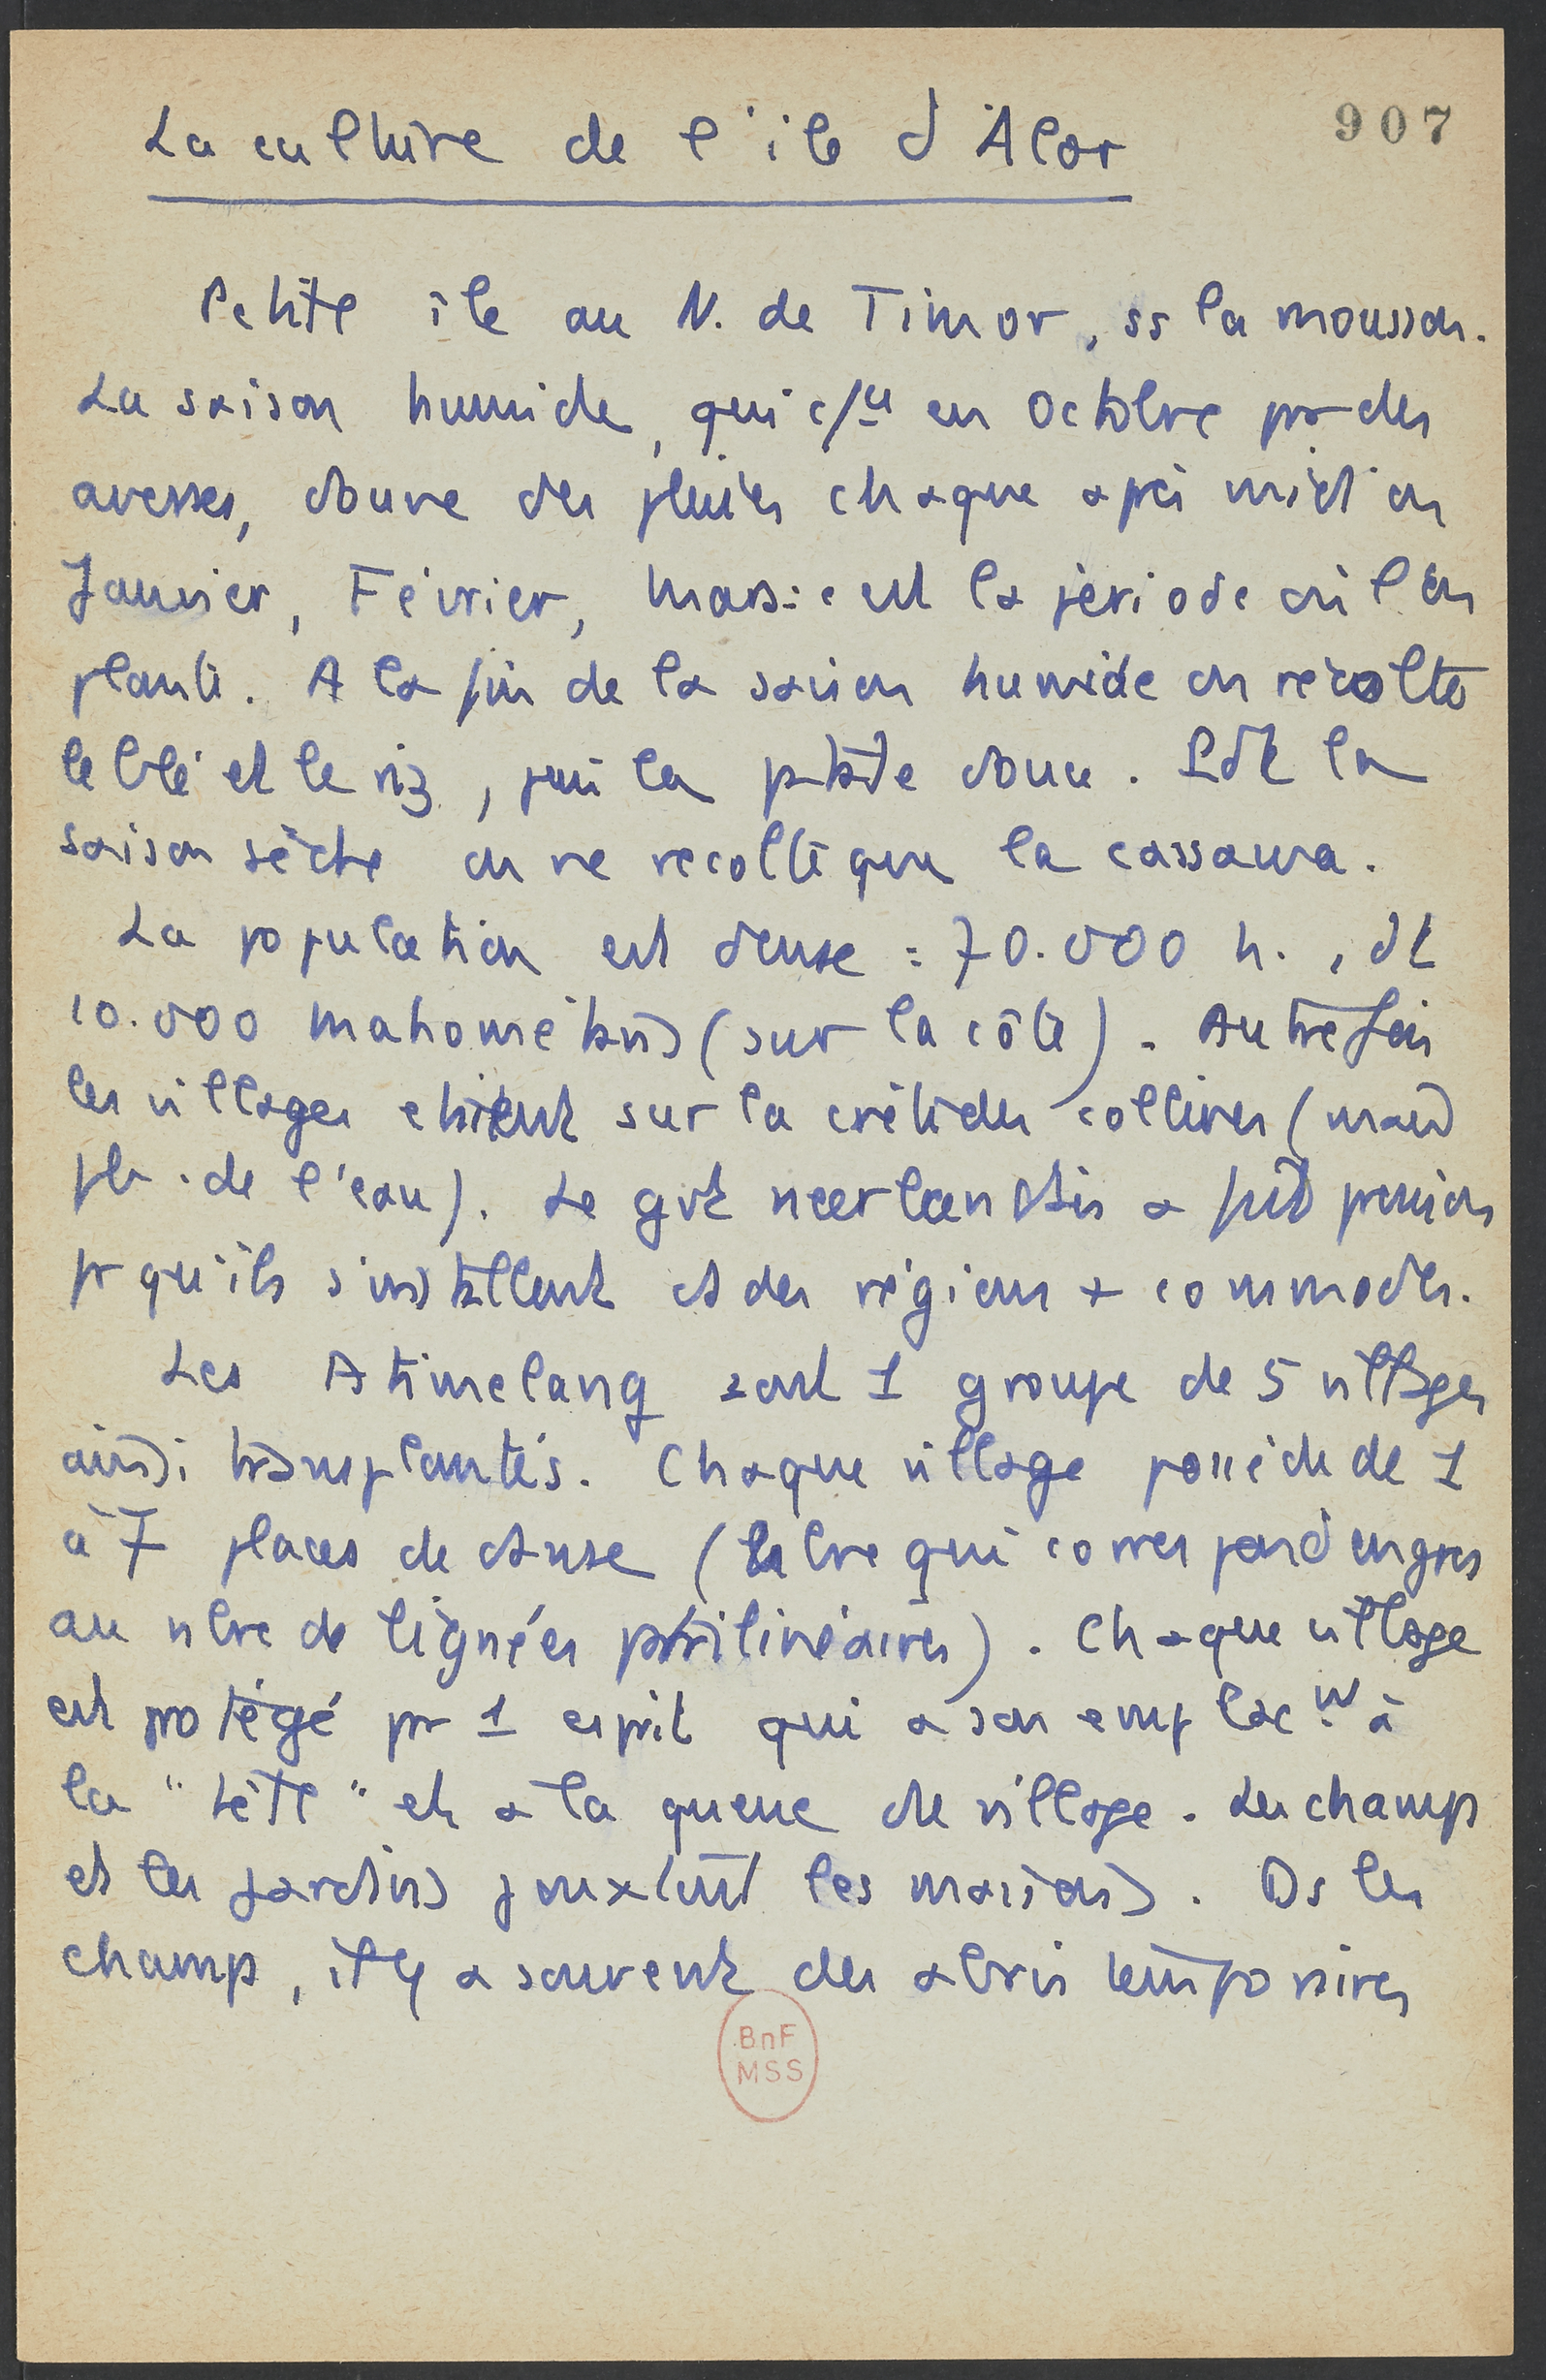 La culture de l'île d'Alor
907
Petite île au N. de Timor, ss la mousson.
La saison humide, qui c/ce en Octobre par des
averses, donne des pluies chaque après midi en
Janvier, Février, Mars : c'est la période où l'on
plante. A la fin de la saison humide on récolte
le blé et le riz, puis la patate douce. Pdt la
saison sèche on ne récolte que la cassava.
La population est dense : 70.000 h., dt
10.000 mahométans (sur la côte). Autrefois
les villages étaient sur la crête des collines (
de l'eau). Le gvt néerlandais a fait pression
pr qu'ils s'installent ds des régions + commodes.
Les Atimelang sont 1 groupe de 5 villages
ainsi transplantés. Chaque village possède de 1
à 7 places de danse (nbre qui correspond en gros
au nbre de lignées patrilinéaires). Chaque village
est protégé pr 1 esprit qui a son emplact à
la "tête" et à la queue de village. Les champs
et les jardins jouxtent les maisons. Ds les
champs, il y a souvent des abris temporaires
BnF
MSS